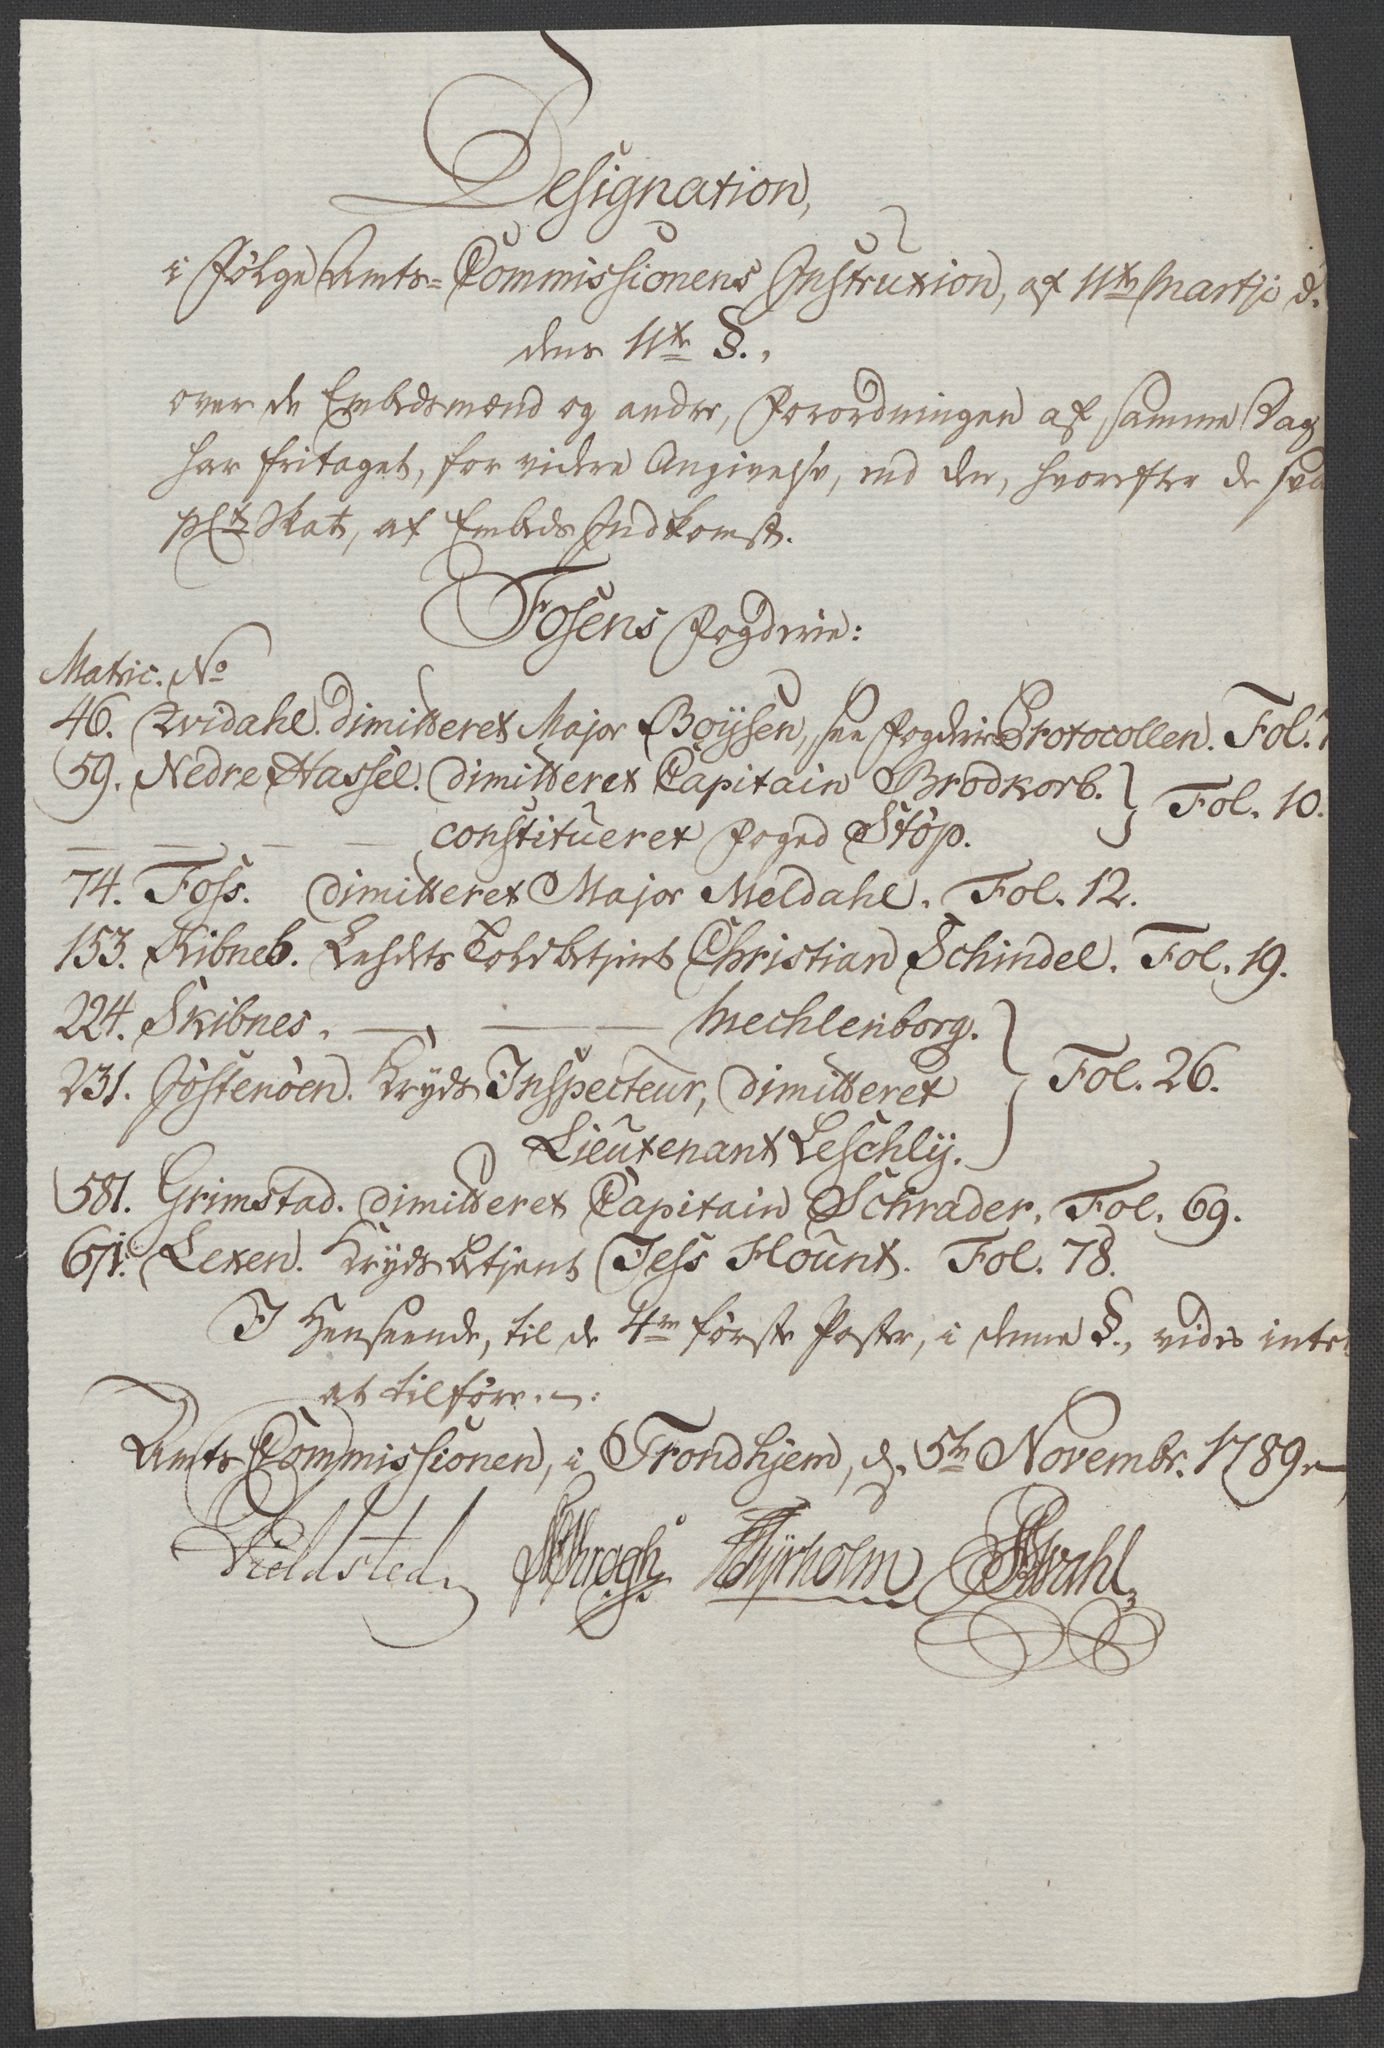 Designation,
i følge Amts-Commissionens Instruxion, af 11te Martji d.
dens 11te §.,
over de Embedsmænd og andre, Forordningen af samme Dag
har fritaget, for videre Angivelse, end den, hvorefter de sva
pCt Skat, af Embeds Indkomst.
Fosens Fogderie:
Matric. No
46. Qvidahl. dimitteret Major Boysen, see Fogderie Protocollen. Fol.
59. Nedre Hassel. dimitteret Capitain Brodkorb. } Fol. 10.
— — — — constitueret Foged Støp.
74. Foss. dimitteret Major Meldahl. Fol. 12.
153. Kibneb. Toldbetjent Christian Schindel. Fol. 19.
224. Skibnes. — — — Mechlenborg. } Fol. 26.
231. Jøstenøen. Kryds Inspecteur, dimitteret
Lieutenant Leschly.
581. Grimstad. dimitteret Capitain Schrader. Fol. 69.
671. Lexen. Krydsbetjent Jess Flount. Fol. 78.
I Henseende, til de 4re første Poster, i denne §., vides intet
at tilføre.
Amts Commissionen, i Trondhjem, d. 5te Novembr. 1789
Fieldsted. Kragh. Tyrholm Wahl